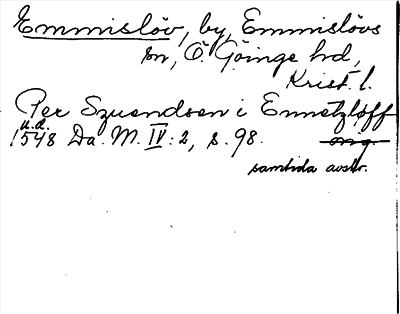 Emmislöv, by, Emmislövs
sn, Ö. Göinge hd,
Krist. l.
Per Szuendsen i Emmetzløff
u.d.
1548 Da. M. IV: 2, s. 98. orig.
samtida avskr.